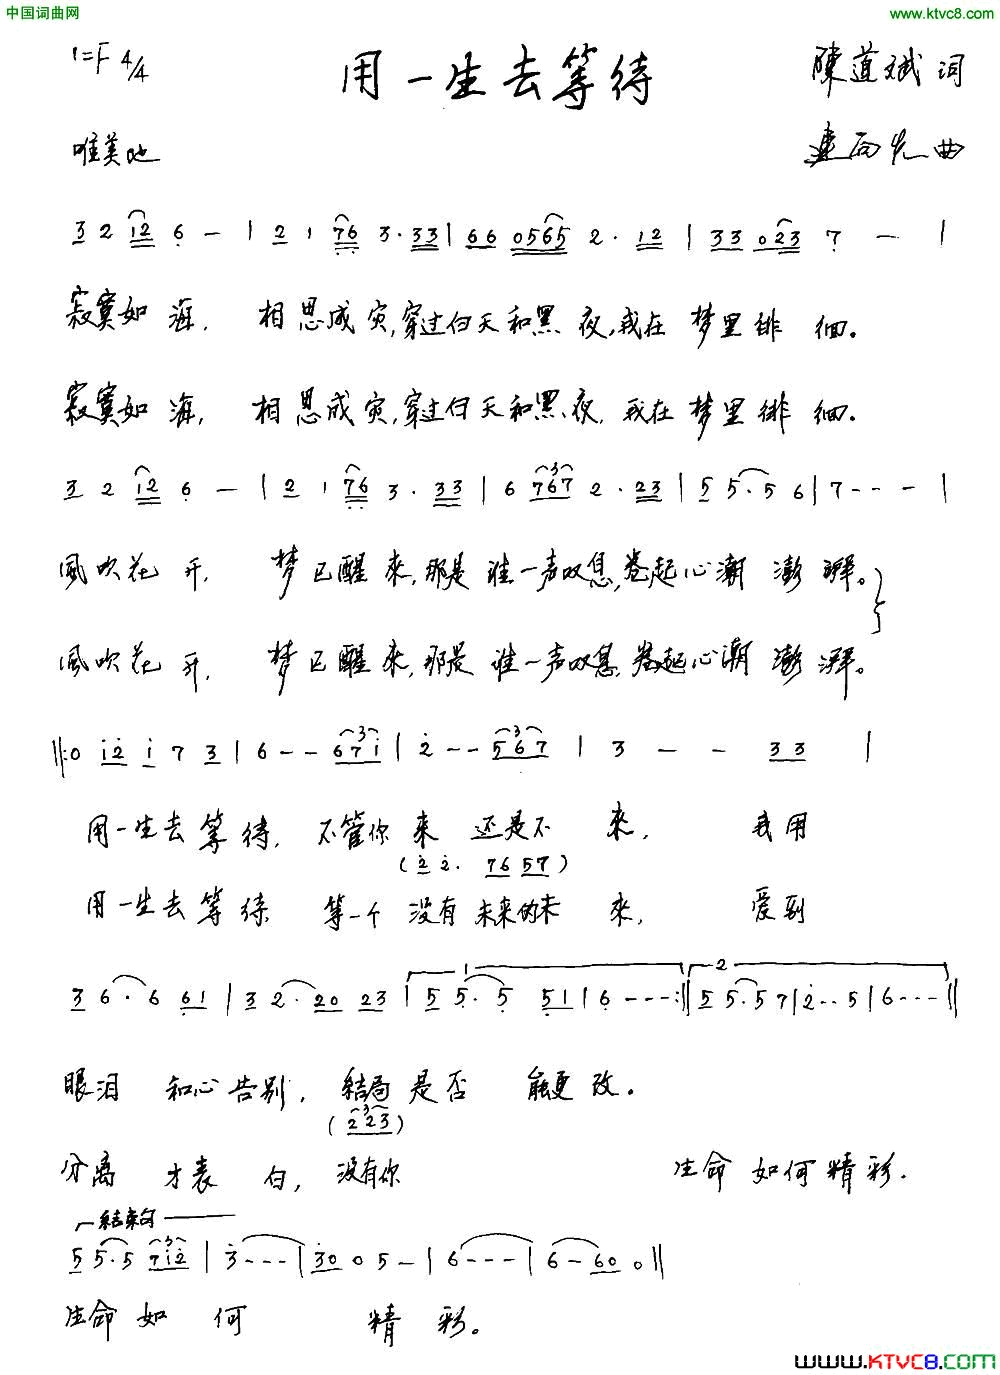 中国词曲网
www.ktvc8.com
1=F 4/4
用一生去等待
陈道斌 词
唯美地
曲
3 2 12 6 - | 2 1 76 3. 33 | 66 0565 2. 12 | 33 023 7 - |
寂寞如海，相思成灾，穿过白天和黑夜，我在梦里徘徊。
寂寞如海，相思成灾，穿过白天和黑夜，我在梦里徘徊。
3 2 12 6 - | 2 1 76 3. 33 | 6 767 2. 23 | 5 5. 5 6 | 7 - - - |
風吹花开，梦已醒来，那是谁一声叹息，卷起心潮澎湃。
風吹花开，梦已醒来，那是谁一声叹息，卷起心潮澎湃。
||: 0 12 1 7 3 | 6 - - 671 | 2 - - 567 | 3 - - 33 |
用一生去等待，不管你来还是不来，我用
(2 2. 76 57)
用一生去等待 等一个没有未来的未来，爱到
1 2
3 6. 6 61 | 3 2. 20 23 | 5 5. 5 51 | 6 - - - :|| 5 5. 5 7 | 2 - - 5 | 6 - - - ||
眼泪和心告别，结局是否能更改。
(223)
分离才表白，没有你 生命如何精彩.
结束句
5 5. 5 712 | 3 - - - | 30 0 5 - | 6 - - - | 6 - 60 0 ||
生命如何精彩。
www.KTVC8.com